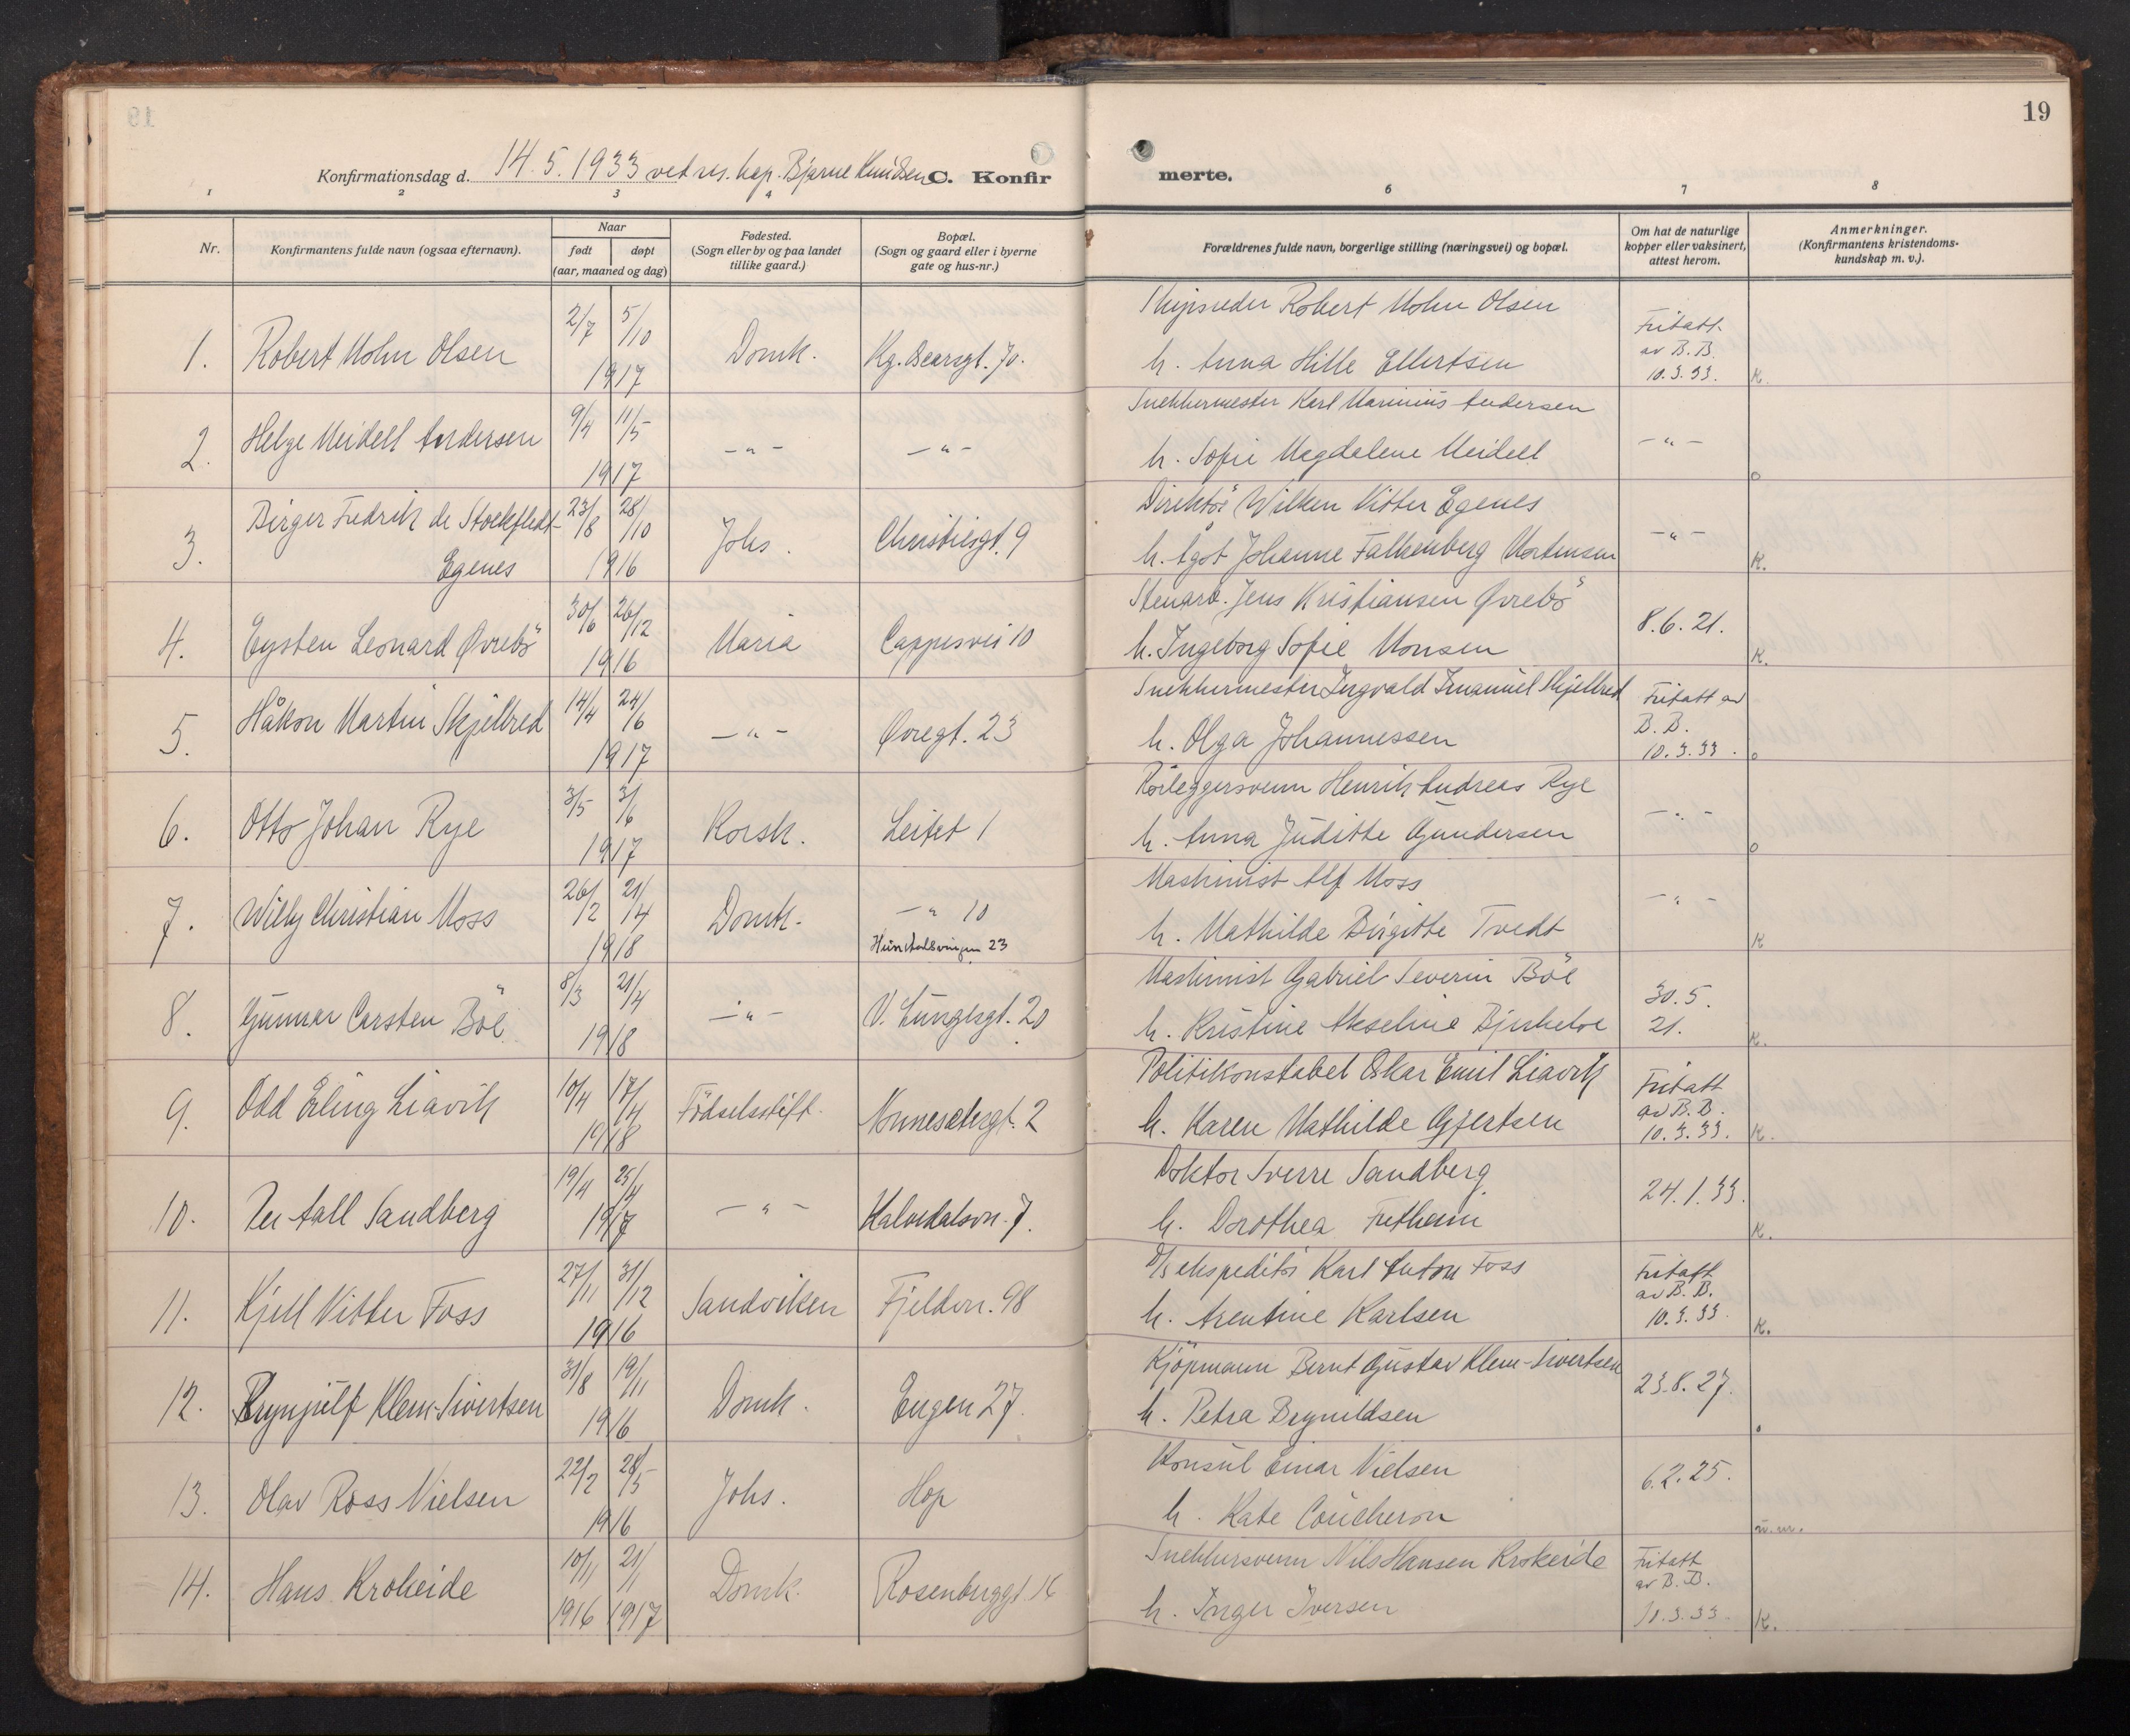 19
Konfirmationsdag d. 14.5.1933 ved res. kap. Bjarne Knudsen C. Konfir
merte.
1 2 3 4 6 7 8
Nr.
Konfirmantens fulde navn (ogsaa efternavn).
Naar
født døpt
(aar, maaned og dag)
Fødested.
(Sogn eller by og paa landet
tillike gaard.)
Bopæl.
(Sogn og gaard eller i byerne
gate og hus-nr.)
Forældrenes fulde navn, borgerlige stilling (næringsvei) og bopæl.
Om hat de naturlige
kopper eller vaksinert,
attest herom.
Anmerkninger.
(Konfirmantens kristendoms-
kundskap m. v.).
1. Robert Holm Olsen 2/7 5/10 1917 Domk. Kg. Oscarsgt. 70.
Skipsreder Robert Holm Olsen
h. Anna Hille Ellertsen
Fritatt
av B.B.
10.3.33. K.
2. Helge Meidell Andersen 9/4 11/5 1917 - " - - " -
Snekkermester Karl Marinius Andersen
h. Sofie Magdalene Meidell
- " - o
3. Birger Fredrik de Stockfledt-
Egenes 23/8 28/10 1916 Johs. Christiesgt. 9
Direktör Wilken Vitter Egenes
h. Ågot Johanne Falkenberg Mortensen
- " - K.
4. Eysten Leonard Øvrebö 30/6 26/12 1916 Maria Cappesvei 10
Stenarb. Jens Kristiansen Øvrebö
h. Ingeborg Sofie Monsen
8.6.21. K.
5. Håkon Martin Skjellred 14/4 24/6 1917 - " - Øvregt. 23
Snekkermester Ingvald Imanuel Skjellred
h. Olga Johannessen
Fritatt av
B.B.
10.3.33. o
6. Otto Johan Rye 3/5 3/6 1917 Korsk. Leitet 1
Rörleggersvenn Henrik Andreas Rye
h. Anna Juditte Gundersen
- " - o
7. Willy Christian Moss 26/2 21/4 1918 Domk. - " 10
23
Maskinist Alf Moss
h. Mathilde Birgitte Tvedt
- " - K
8. Gunnar Carsten Böe 8/3 21/4 1918 - " - V. Lungesgt. 20
Maskinist Gabriel Severin Böe
h. Kristine Akseline Bjerkeloe
30.5.
21. K.
9. Odd Erling Liavik 10/4 17/4 1918 Födselsstift. Nonnesetergt. 2
Politikonstabel Oskar Emil Liavik
h. Karen Mathilde Gjertsen
Fritatt
av B.B.
10.3.33. K.
10. Per Aall Sandberg 19/4 25/4 1917 - " - Kalvedalsvn. 7.
Doktor Sverre Sandberg
h. Dorothea Fretheim
24.1.33. K.
11. Kjell Vitter Foss 27/11 31/12 1916 Sandviken Fjeldvn. 98
D/s ekspeditör Karl Anton Foss
h. Arentine Karlsen
Fritatt
av B.B.
10.3.33. K.
12. Brynjulf Klem-Sivertsen 31/8 19/11 1916 Domk. Engen 27.
Kjöpmann Bernt Gustav Klem-Sivertsen
h. Petra Brynildsen
23.8.27.
13. Olav Ross Nielsen 22/2 28/5 1916 Johs. Hop
Konsul Einar Nielsen
h. Kate Coucheron
6.2.25. u.m.
14. Hans Krokeide 10/11 21/1 1916 1917 Domk. Rosenberggt. 16
Snekkersvenn Nils Hansen Krokeide
h. Inger Iversen
Fritatt
av B.B.
10.3.33. K.